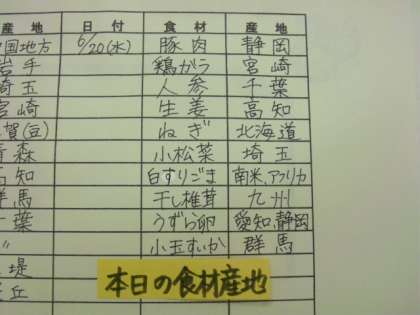 産 地 日 付 食 材 産 地
国地方 6/20(水) 豚肉 静岡
岩手 鶏がら 宮崎
埼玉 人参 千葉
宮崎 生姜 高知
賀(豆) ねぎ 北海道
青森 小松菜 埼玉
高知 白すりごま 南米、アフリカ
群馬 干し椎茸 九州
千葉 うずら卵 愛知、静岡
〃 小玉すいか 群馬
堤
丘
本日の食材産地